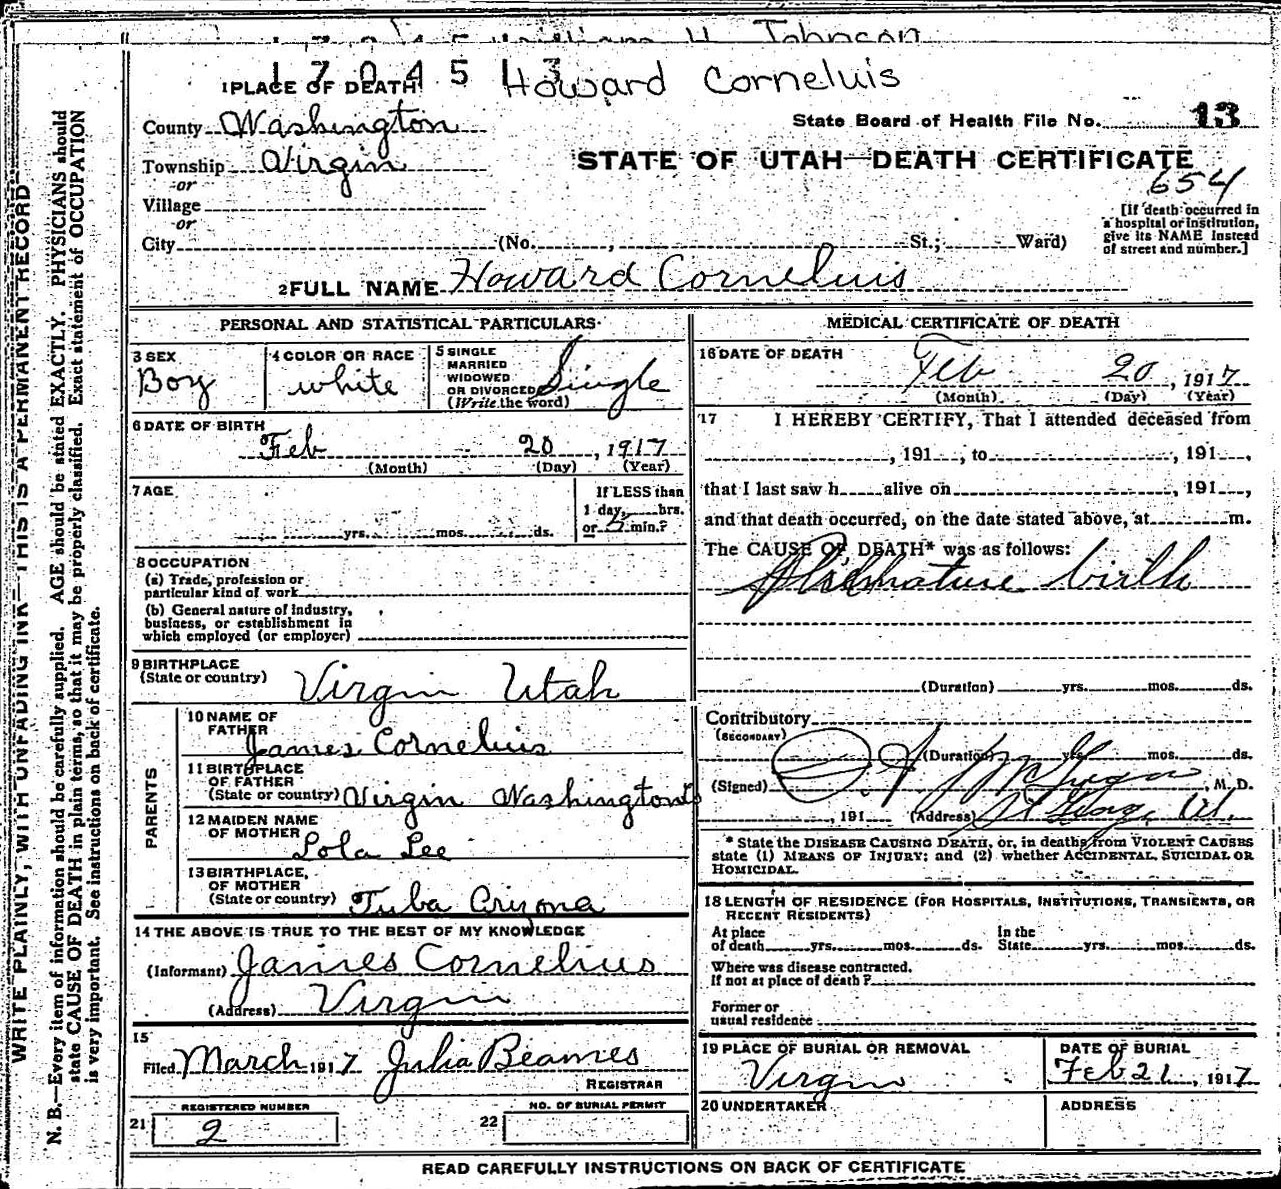 1 7 0 4 5 1 3 Howard Corneluis
1 PLACE OF DEATH
County Washington
State Board of Health File No. 13
Township Virgin
STATE OF UTAH—DEATH CERTIFICATE
654
-or
Village
-or
City (No. , St.; Ward)
[If death occurred in
a hospital or institution,
give its NAME instead
of street and number.]
2 FULL NAME Howard Corneluis
PERSONAL AND STATISTICAL PARTICULARS
3 SEX
Boy
4 COLOR OR RACE
white
5 SINGLE
MARRIED
WIDOWED
OR DIVORCED
(Write the word)
Single
6 DATE OF BIRTH
Feb 20, 1917
(Month) (Day) (Year)
7 AGE
yrs. mos. ds.
If LESS than
1 day, hrs.
or 5 min.?
8 OCCUPATION
(a) Trade, profession or
particular kind of work
(b) General nature of industry,
business, or establishment in
which employed (or employer)
9 BIRTHPLACE
(State or country) Virgin Utah
PARENTS
10 NAME OF
FATHER
James Cornelius
11 BIRTHPLACE
OF FATHER
(State or country) Virgin Washington
12 MAIDEN NAME
OF MOTHER
Lola Lee
13 BIRTHPLACE,
OF MOTHER
(State or country) Tuba Arizona
14 THE ABOVE IS TRUE TO THE BEST OF MY KNOWLEDGE
(Informant) James Cornelius
(Address) Virgin
15
Filed March 1917 Julia Beames
REGISTRAR
21 REGISTERED NUMBER
2
22 NO. OF BURIAL PERMIT
MEDICAL CERTIFICATE OF DEATH
16 DATE OF DEATH
Feb 20, 1917
(Month) (Day) (Year)
17 I HEREBY CERTIFY, That I attended deceased from
, 191 , to , 191 ,
that I last saw h alive on , 191 ,
and that death occurred, on the date stated above, at m.
The CAUSE OF DEATH* was as follows:
Premature birth
(Duration) yrs. mos. ds.
Contributory
(SECONDARY)
(Duration) yrs. mos. ds.
(Signed) M. D.
, 191 (Address) St George Ut.
* State the DISEASE CAUSING DEATH, or, in deaths from VIOLENT CAUSES
state (1) MEANS OF INJURY; and (2) whether ACCIDENTAL, SUICIDAL OR
HOMICIDAL.
18 LENGTH OF RESIDENCE (FOR HOSPITALS, INSTITUTIONS, TRANSIENTS, OR
RECENT RESIDENTS)
At place
of death yrs. mos. ds.
In the
State yrs. mos. ds.
Where was disease contracted.
If not at place of death?
Former or
usual residence
19 PLACE OF BURIAL OR REMOVAL
Virgin
DATE OF BURIAL
Feb 21, 1917
20 UNDERTAKER
ADDRESS
READ CAREFULLY INSTRUCTIONS ON BACK OF CERTIFICATE
WRITE PLAINLY, WITH UNFADING INK—THIS IS A PERMANENT RECORD
N. B.—Every item of information should be carefully supplied. AGE should be stated EXACTLY. PHYSICIANS should
state CAUSE OF DEATH in plain terms, so that it may be properly classified. Exact statement of OCCUPATION
is very important. See instructions on back of certificate.